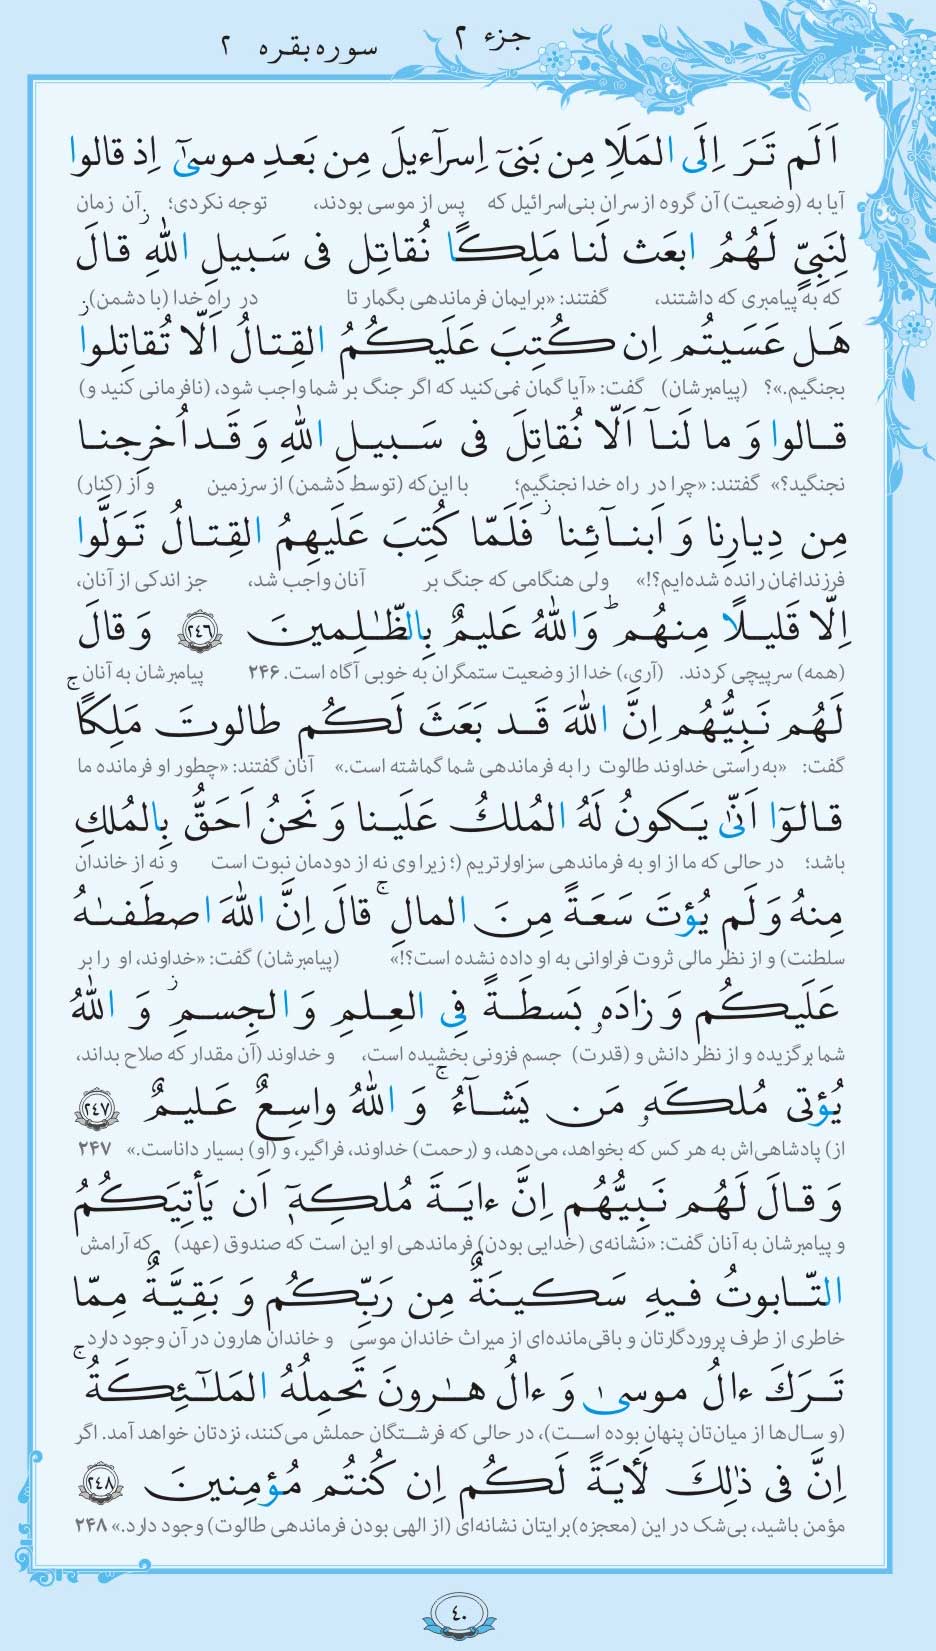 جزء ٢
سوره بقره ٢
اَلَم تَرَ اِلَى المَلَاِ مِن بَنىٓ اِسرآءيلَ مِن بَعدِ موسىٰٓ اِذ قالوا
آیا به (وضعیت) آن گروه از سران بنی‌اسرائیل که پس از موسی بودند، توجه نکردی؛ آن زمان
لِنَبِيٍّ لَهُمُ ابعَث لَنا مَلِكًا نُقاتِل فى سَبيلِ اللّٰهِ ز قالَ
که به پیامبری که داشتند، گفتند: «برایمان فرماندهی بگمار تا در راه خدا (با دشمن)
هَل عَسَيتُم اِن كُتِبَ عَلَيكُمُ القِتالُ اَلّا تُقاتِلوا ز
بجنگیم.»؟ (پیامبرشان) گفت: «آیا گمان نمی‌کنید که اگر جنگ بر شما واجب شود، (نافرمانی کنید و)
قالوا وَ ما لَنآ اَلّا نُقاتِلَ فى سَبيلِ اللّٰهِ وَ قَد اُخرِجنا
نجنگید؟» گفتند: «چرا در راه خدا نجنگیم؛ با این‌که (توسط دشمن) از سرزمین و از (کنار)
مِن دِيارِنا وَ اَبنآئِنا ز فَلَمّا كُتِبَ عَلَيهِمُ القِتالُ تَوَلَّوا
فرزندانمان رانده شده‌ایم؟!» ولی هنگامی که جنگ بر آنان واجب شد، جز اندکی از آنان،
اِلّا قَليلًا مِنهُم ط وَاللّٰهُ عَليمٌ بِالظّٰلِمينَ ٢٤٦ وَ قالَ
(همه) سرپیچی کردند. (آری،) خدا از وضعیت ستمگران به خوبی آگاه است. ۲۴۶ پیامبرشان به آنان
لَهُم نَبِيُّهُم اِنَّ اللّٰهَ قَد بَعَثَ لَكُم طالوتَ مَلِكًا ج
گفت: «به راستی خداوند طالوت را به فرماندهی شما گماشته است.» آنان گفتند: «چطور او فرمانده ما
قالوٓا اَنّىٰ يَكونُ لَهُ المُلكُ عَلَينا وَ نَحنُ اَحَقُّ بِالمُلكِ
باشد؛ در حالی که ما از او به فرماندهی سزاوارتریم (؛ زیرا وی نه از دودمان نبوت است و نه از خاندان
مِنهُ وَ لَم يُؤتَ سَعَةً مِنَ المالِ ج قالَ اِنَّ اللّٰهَ اصطَفىٰهُ
سلطنت) و از نظر مالی ثروت فراوانی به او داده نشده است؟!» (پیامبرشان) گفت: «خداوند، او را بر
عَلَيكُم وَ زادَهٗ بَسطَةً فِى العِلمِ وَ الجِسمِ ز وَ اللّٰهُ
شما برگزیده و از نظر دانش و (قدرت) جسم فزونی بخشیده است، و خداوند (آن مقدار که صلاح بداند،
يُؤتى مُلكَهٗ مَن يَشآءُ ج وَ اللّٰهُ واسِعٌ عَليمٌ ٢٤٧
از) پادشاهی‌اش به هر کس که بخواهد، می‌دهد، و (رحمت) خداوند، فراگیر، و (او) بسیار داناست.» ۲۴۷
وَ قالَ لَهُم نَبِيُّهُم اِنَّ ءايَةَ مُلكِهٖٓ اَن يَأتِيَكُمُ
و پیامبرشان به آنان گفت: «نشانه‌ی (خدایی بودن) فرماندهی او این است که صندوق (عهد) که آرامش
التّابوتُ فيهِ سَكينَةٌ مِن رَبِّكُم وَ بَقِيَّةٌ مِمّا
خاطری از طرف پروردگارتان و باقی‌مانده‌ای از میراث خاندان موسی و خاندان هارون در آن وجود دارد
تَرَكَ ءالُ موسىٰ وَ ءالُ هٰرونَ تَحمِلُهُ المَلٰٓئِكَةُ ج
(و سال‌ها از میان‌تان پنهان بوده است)، در حالی که فرشتگان حملش می‌کنند، نزدتان خواهد آمد. اگر
اِنَّ فى ذٰلِكَ لَأٰيَةً لَكُم اِن كُنتُم مُؤمِنينَ ٢٤٨
مؤمن باشید، بی‌شک در این (معجزه) برایتان نشانه‌ای (از الهی بودن فرماندهی طالوت) وجود دارد.» ۲۴۸
٤٠